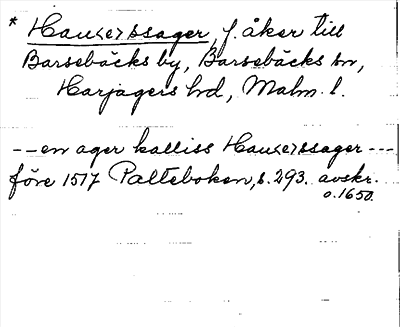 * Hau<er>ssager, f. åker till
Barsebäcks by, Barsebäcks sn,
Harjagers hd, Malm. l.
-- en ager kalliss Hau<er>ssager ---
före 1517 Palteboken, s. 293. avskr.
o. 1650.